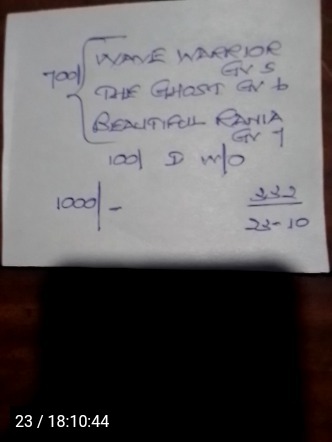 700/ WAVE WARRIOR
GV 5
THE GHOST GV 6
BEAUTIFUL RANIA
GV 7
100/ D W/O
1000/-
332
23-10
23 / 18:10:44